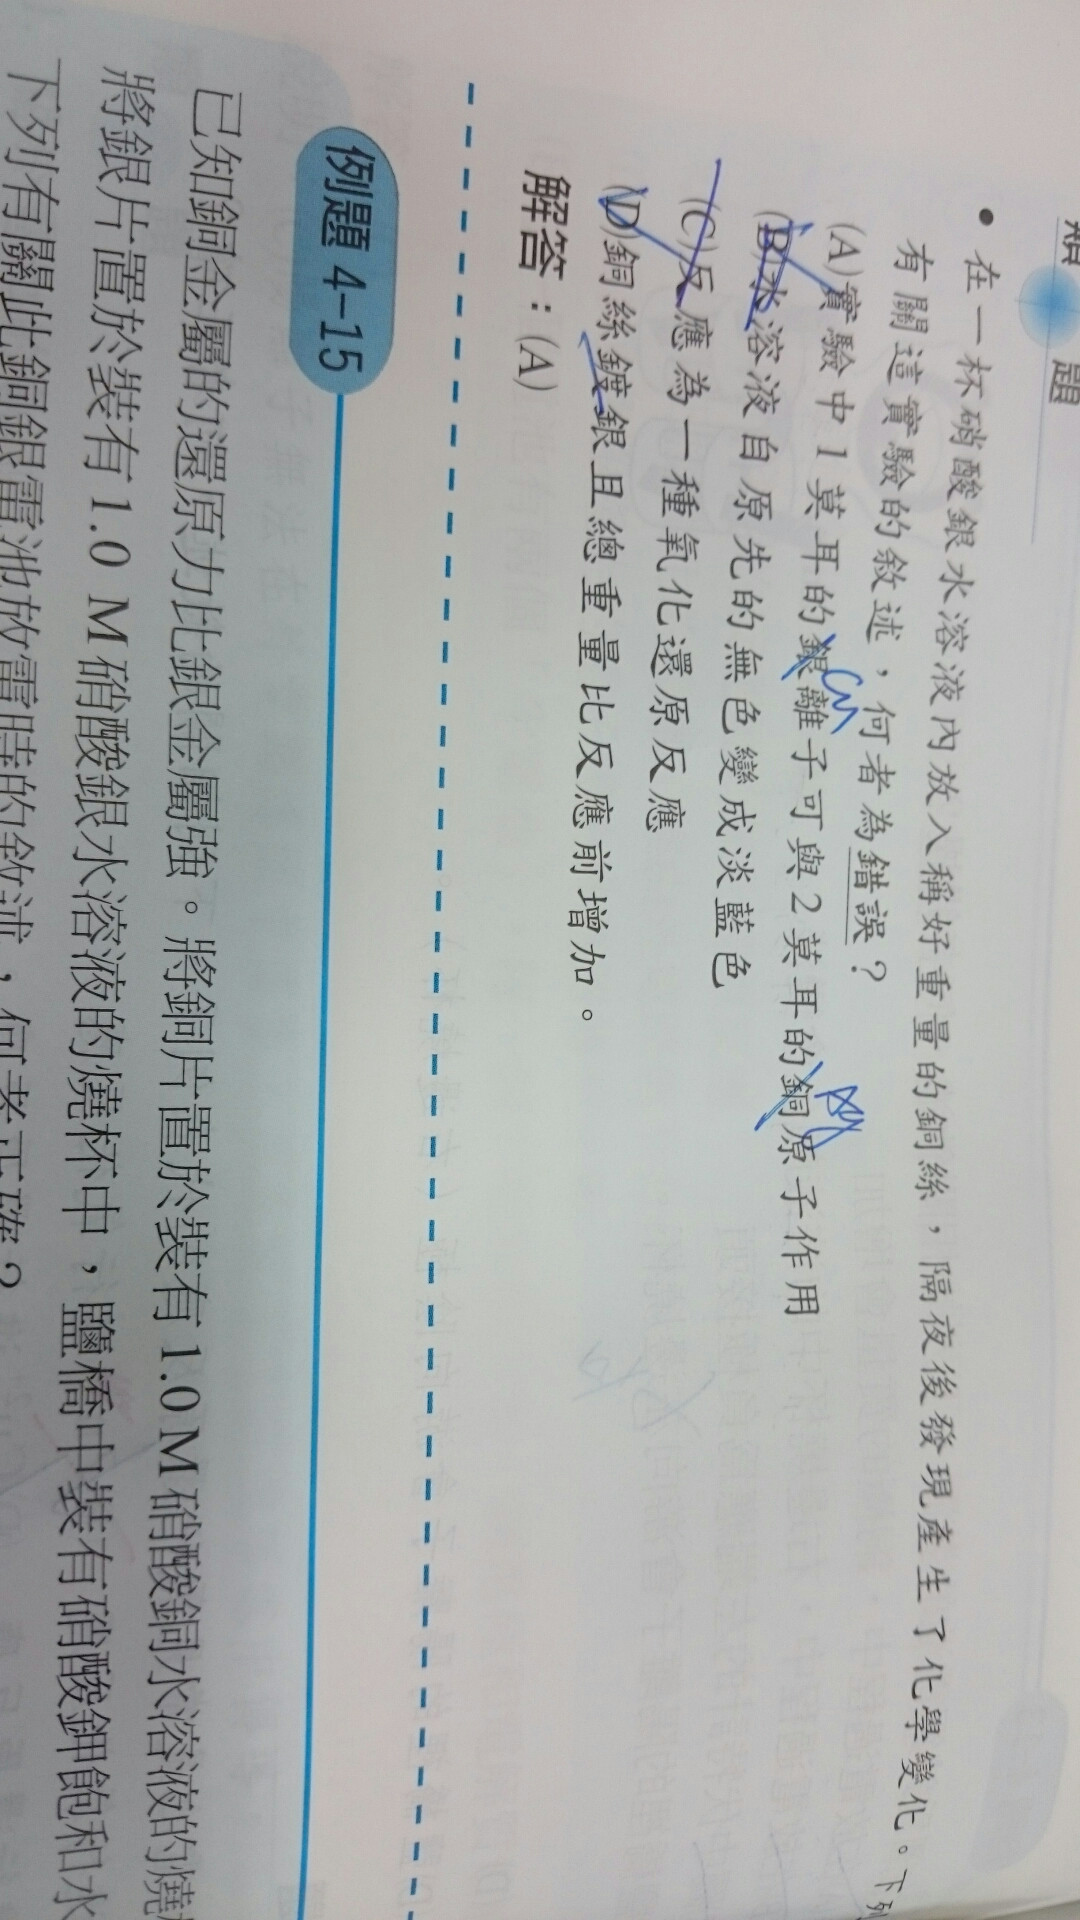 題
• 在一杯硝酸銀水溶液內放入稱好重量的銅絲，隔夜後發現產生了化學變化。下列
有關這實驗的敘述，何者為錯誤？
(A)實驗中1莫耳的銀離子可與2莫耳的銅原子作用
Cu
Ag
(B)水溶液自原先的無色變成淡藍色
(C)反應為一種氧化還原反應
(D)銅絲鍍銀且總重量比反應前增加。
解答：(A)
例題 4-15
已知銅金屬的還原力比銀金屬強。將銅片置於裝有 1.0 M 硝酸銅水溶液的燒
將銀片置於裝有 1.0 M 硝酸銀水溶液的燒杯中，鹽橋中裝有硝酸鉀飽和水
下列有關此銅銀電池放電時的敘述，何者正確？